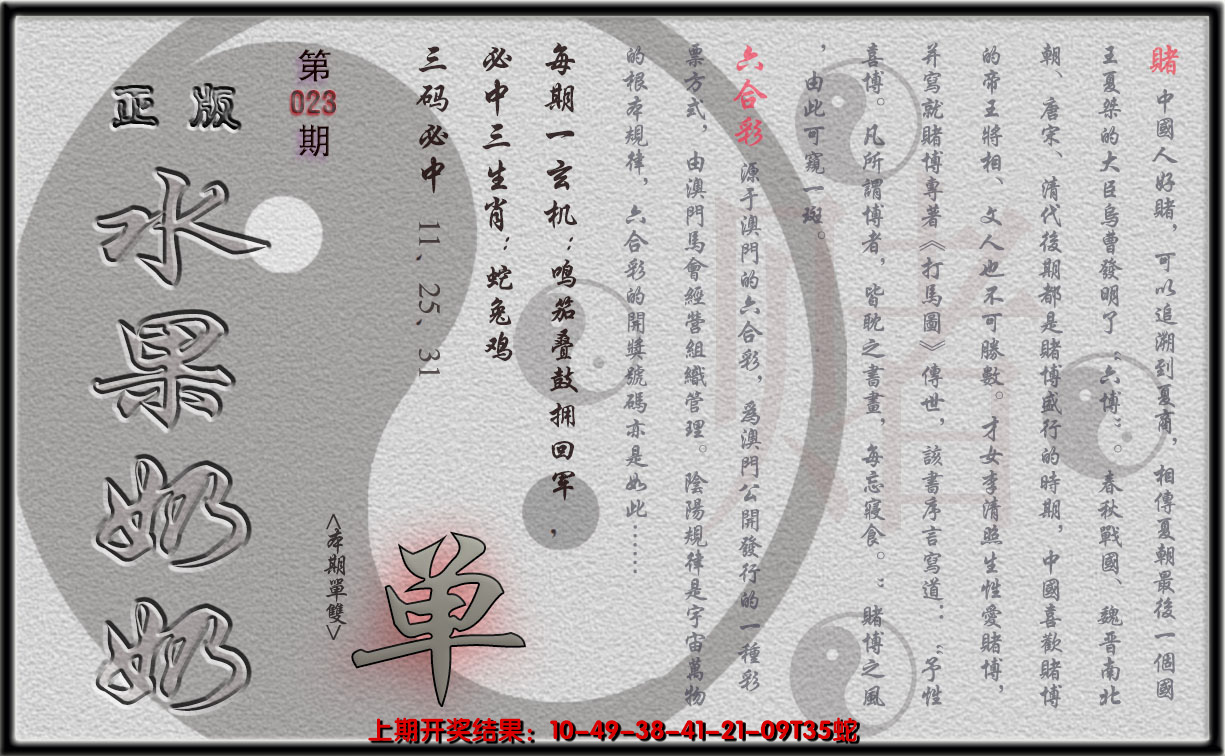 賭 中國人好賭，可以追溯到夏商，相傳夏朝最後一個國
王夏桀的大臣烏曹發明了“六博”。春秋戰國、魏晋南北
朝、唐宋、清代後期都是賭博盛行的時期，中國喜歡賭博
的帝王將相、文人也不可勝數。才女李清照生性愛賭博，
并寫就賭博專著《打馬圖》傳世，該書序言寫道：“予性
喜博。凡所謂博者，皆耽之晝晝，每忘寢食。”賭博之風
，由此可窺一斑。
六合彩 源于澳門的六合彩，爲澳門公開發行的一種彩
票方式，由澳門馬會經營組織管理。陰陽規律是宇宙萬物
的根本規律，六合彩的開獎號碼亦是如此……
每期一玄机：鸣笳叠鼓拥回军，
必中三生肖：蛇兔鸡
三码必中 11、25、31
第
023
期
正版
水果奶奶
<本期單雙>
单
上期开奖结果：10-49-38-41-21-09T35蛇